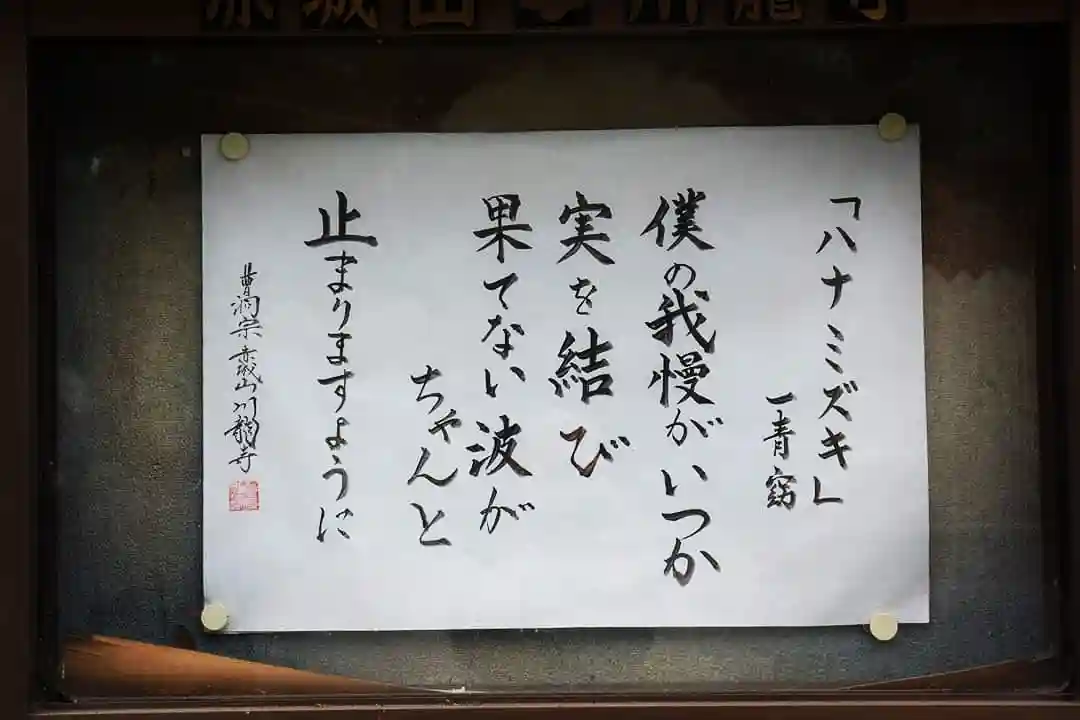 赤城山 川龍寺
「ハナミズキ」
一青窈
僕の我慢がいつか
実を結び
果てない波が
ちゃんと
止まりますように
曹洞宗 赤城山 川龍寺